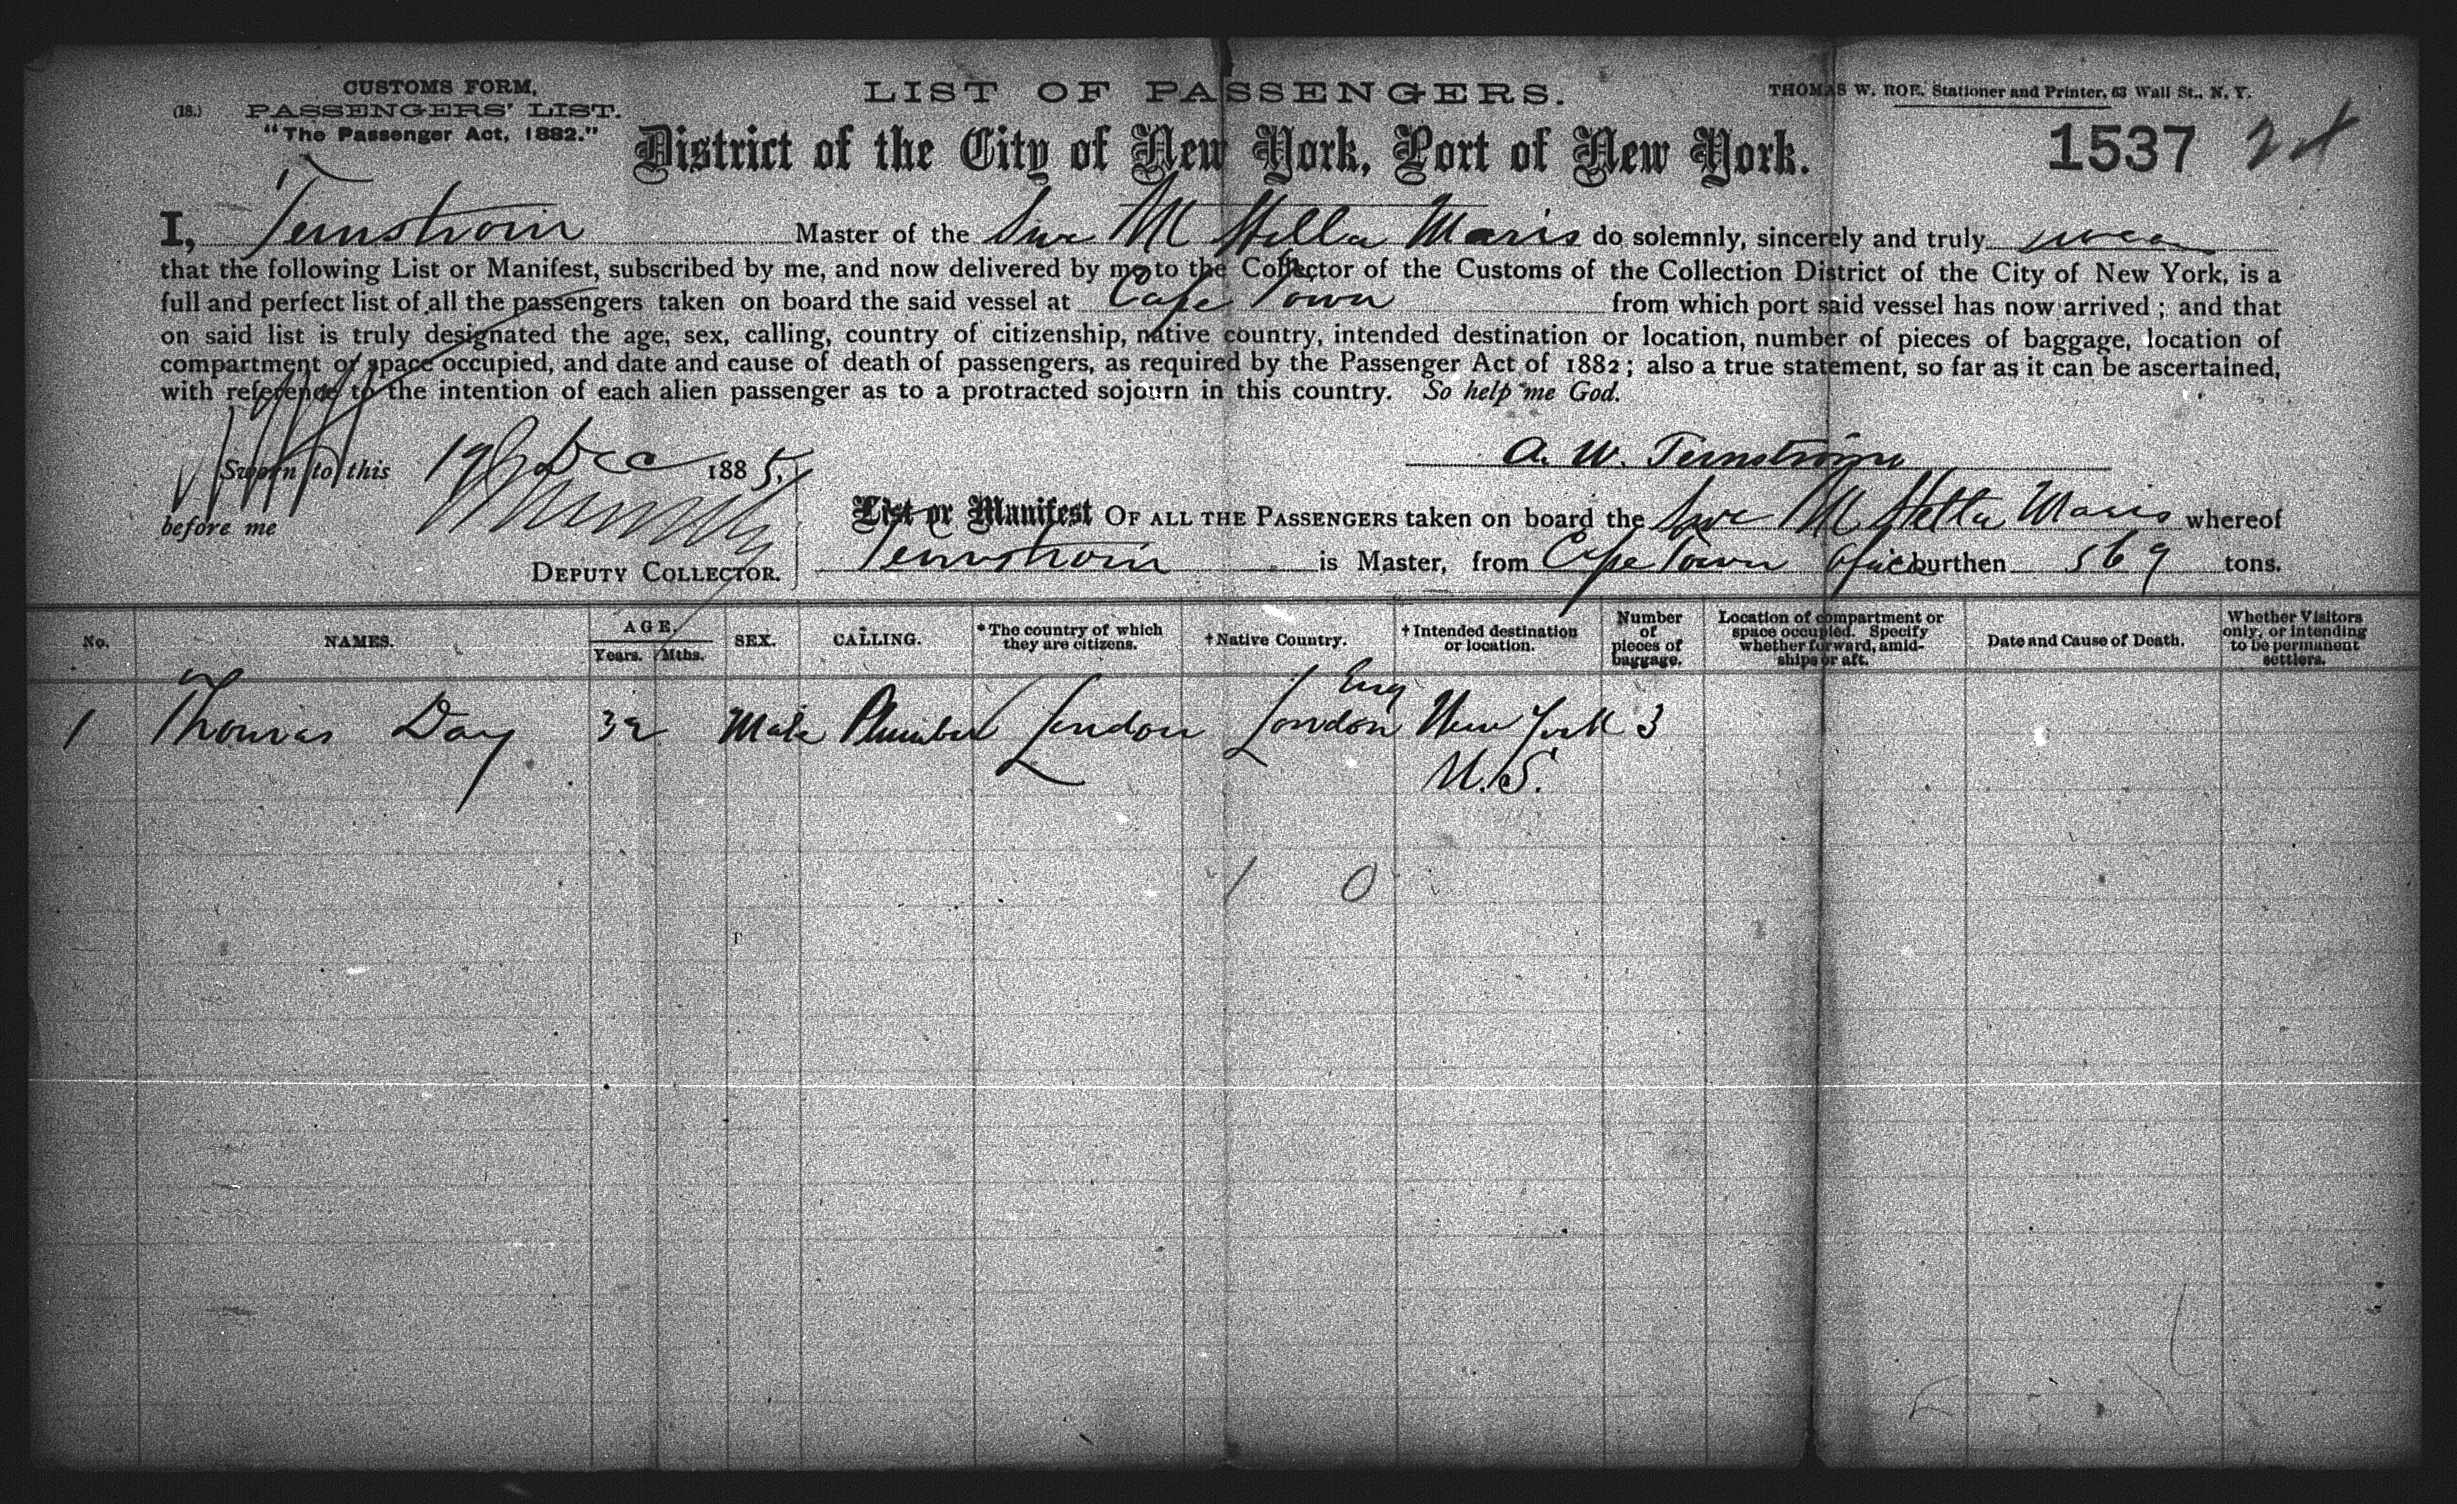 CUSTOMS FORM,
(18.) PASSENGERS' LIST.
"The Passenger Act, 1882."
LIST OF PASSENGERS.
THOMAS W. ROE, Stationer and Printer, 63 Wall St., N. Y.
District of the City of New York, Port of New York.
1537
I, Ternstrom Master of the Swe Stella Maris do solemnly, sincerely and truly swear
that the following List or Manifest, subscribed by me, and now delivered by me to the Collector of the Customs of the Collection District of the City of New York, is a
full and perfect list of all the passengers taken on board the said vessel at Cape Town from which port said vessel has now arrived; and that
on said list is truly designated the age, sex, calling, country of citizenship, native country, intended destination or location, number of pieces of baggage, location of
compartment or space occupied, and date and cause of death of passengers, as required by the Passenger Act of 1882; also a true statement, so far as it can be ascertained,
with reference to the intention of each alien passenger as to a protracted sojourn in this country. So help me God.
Sworn to this Dec 1885,
before me
DEPUTY COLLECTOR.
A. W. Ternström
List or Manifest OF ALL THE PASSENGERS taken on board the Swe Stella Maris whereof
Ternstrom is Master, from Cape Town Africa burthen 569 tons.
No. NAMES. AGE. Years. Mths. SEX. CALLING. *The country of which they are citizens. †Native Country. †Intended destination or location. Number of pieces of baggage. Location of compartment or space occupied. Specify whether forward, amidships or aft. Date and Cause of Death. Whether Visitors only, or intending to be permanent settlers.
1 Thomas Day 32 Male Plumber London London Eng New York 3
U.S.
1 0